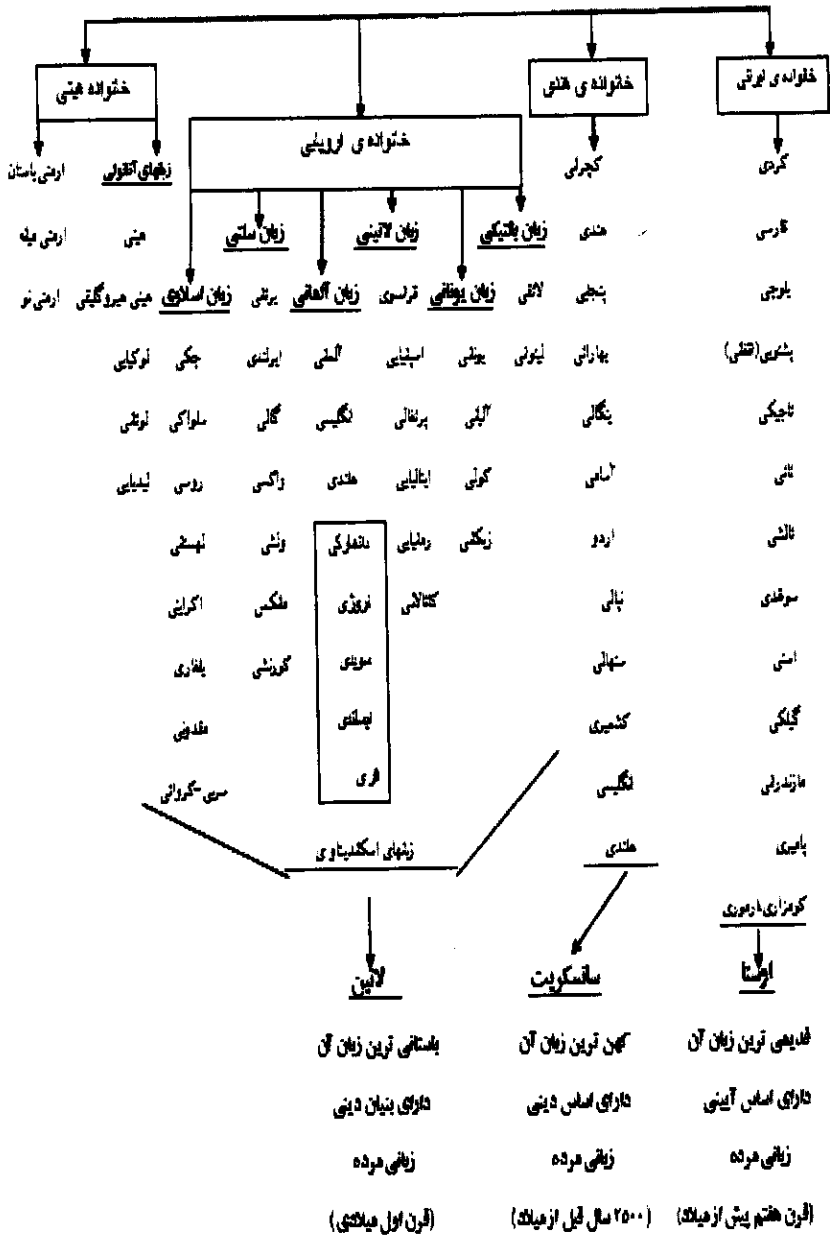 خانواده ی ایرانی
کردی
فارسی
بلوچی
پشتویی(افغانی)
تاجیکی
تاتی
تالشی
سوغدی
استی
گیلکی
مازندرانی
پامیری
اوستا
قدیمی ترین زبان آن
دارای اساس آیینی
زبانی مرده
(قرن هفتم پیش از میلاد)
خانواده ی هندی
گجراتی
هندی
پنجابی
بهاراتی
بنگالی
آسامی
اردو
نپالی
سنهالی
کشمیری
انگلیسی
هلندی
سانسکریت
کهن ترین زبان آن
دارای اساس دینی
زبانی مرده
(۲۵۰۰ سال قبل از میلاد)
خانواده ی اروپایی
زبان بالتیکی
لاتفی
لیتونی
زبان یونانی
یونانی
آلبانی
گوتی
زبان لاتینی
فرانسوی
اسپانیایی
پرتغالی
ایتالیایی
رمانیایی
کتالانی
زبان آلمانی
آلمانی
انگلیسی
هلندی
دانمارکی
نروژی
سویدی
ایسلندی
فری
زبان سلتی
برتنی
ایرلندی
گالی
واکسی
ولشی
منکس
کورنشی
زبان اسلاوی
چکی
سلواکی
روسی
لهستانی
اکراینی
بلغاری
مقدونی
صربی-کرواتی
زبانهای اسکندیناوی
لاتین
باستانی ترین زبان آن
دارای بنیان دینی
زبانی مرده
(قرن اول میلادی)
خانواده هیتی
زبانهای آناتولی
هیتی
هیتی هیروگلیفی
لوکیایی
لیدیایی
ارمنی باستان
ارمنی میانه
ارمنی نو